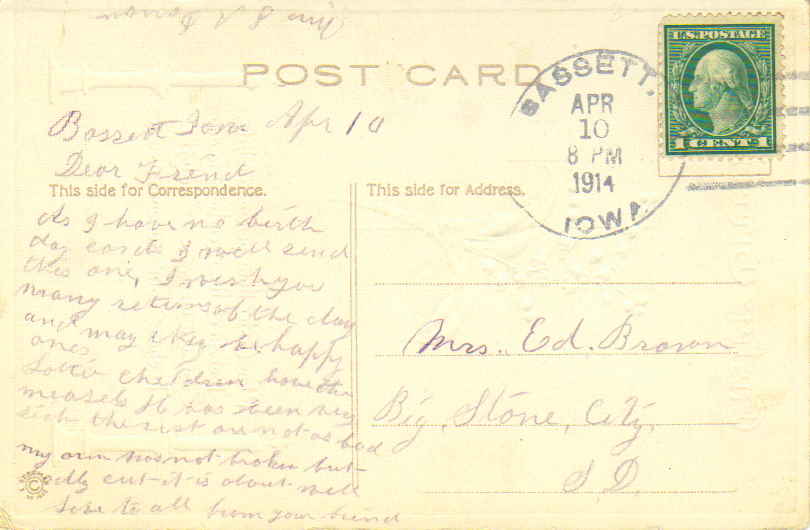 Mrs J A
POST CARD
BASSETT,
APR
10
8 PM
1914
IOWA
U.S. POSTAGE
1 CENT 1
Bassett Iowa Apr 10
Dear Friend
This side for Correspondence.
As I have no birth
day cards I will send
this one, I wish you
many returns of the day
and may they be happy
ones
children have the
measels has been very
sick the rest are not as bad
my arm was not broken but
cut it is about well
to all from your friend
This side for Address.
Mrs. Ed. Brown
Big, Stone, City,
S D.